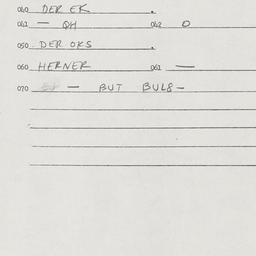 040 DER EK .
041 — QH 042 O
050 DER OKS .
060 HERNER 061 —
070 — BUT BUL8-